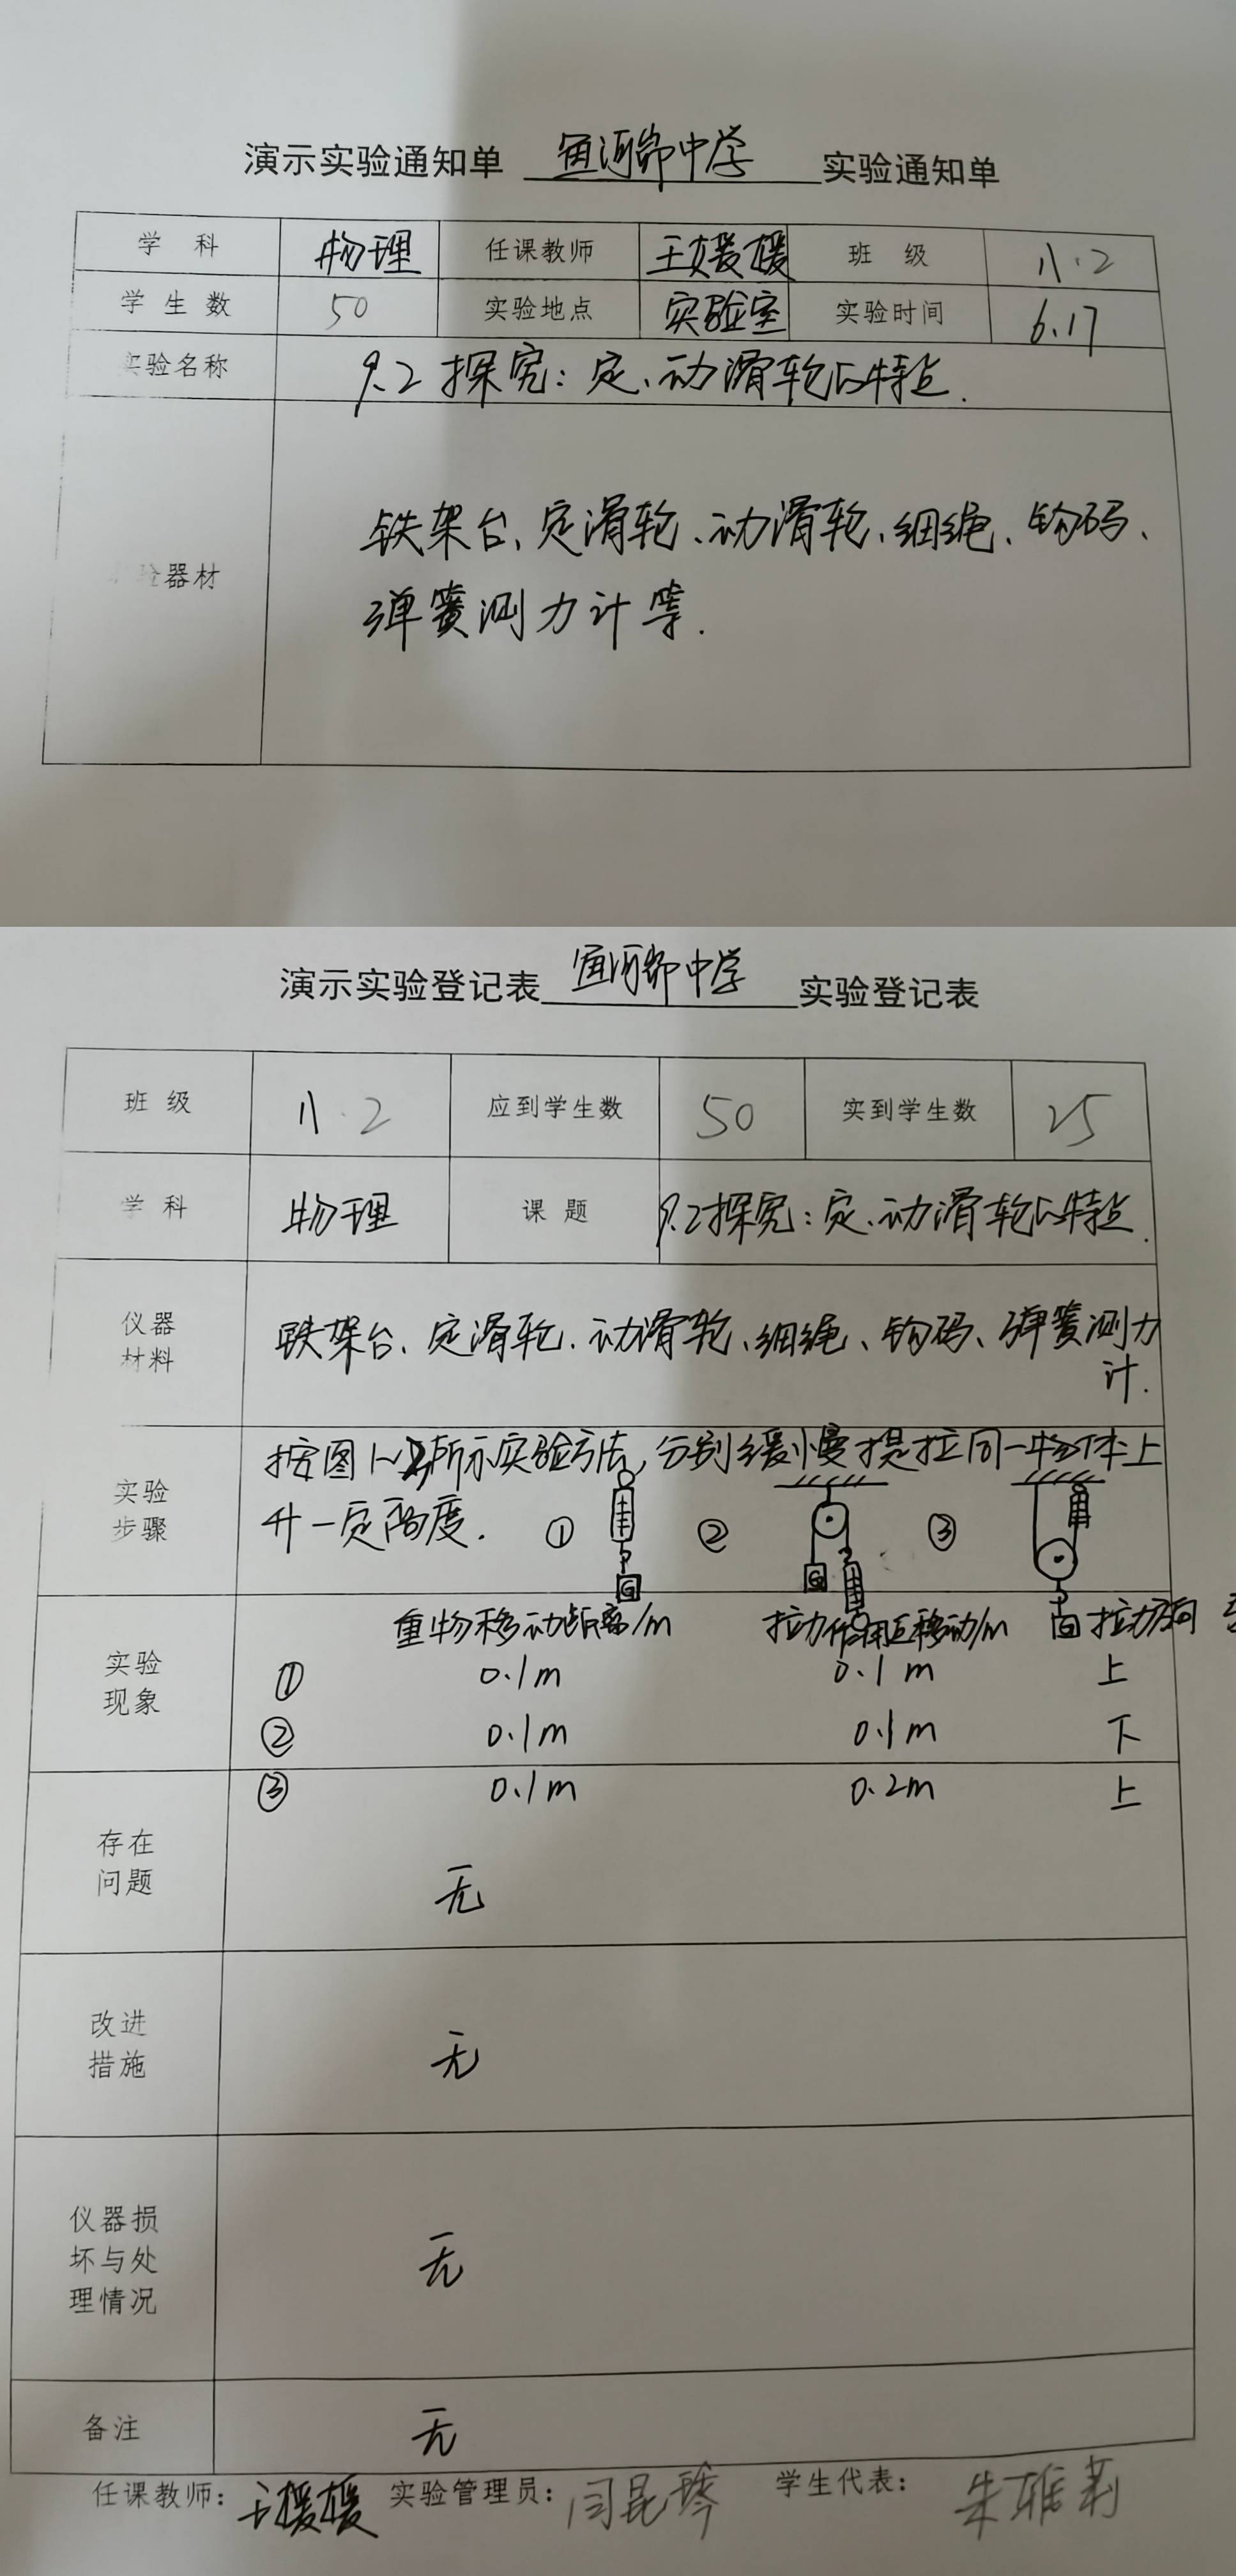 演示实验通知单 鱼河峁中学 实验通知单
学 科 物理 任课教师 王媛媛 班 级 八.2
学 生 数 50 实验地点 实验室 实验时间 6.17
实验名称 9.2 探究:定、动滑轮的特点.
验器材 铁架台、定滑轮、动滑轮、细绳、钩码、
弹簧测力计等.
演示实验登记表 鱼河峁中学 实验登记表
班 级 八.2 应到学生数 50 实到学生数 25
学 科 物理 课 题 9.2探究:定、动滑轮的特点.
仪器
材料 铁架台、定滑轮、动滑轮、细绳、钩码、弹簧测力
计.
实验
步骤 按图1~3所示实验方法,分别缓慢提拉同一物体上
升一定高度. ① ② ③
G G
重物移动距离/m 拉力作用点移动/m 拉力方向
实验
现象 ① 0.1m 0.1m 上
② 0.1m 0.1m 下
③ 0.1m 0.2m 上
存在
问题 无
改进
措施 无
仪器损
坏与处
理情况 无
备注 无
任课教师: 王媛媛 实验管理员: 闫昆琴 学生代表: 朱雅莉